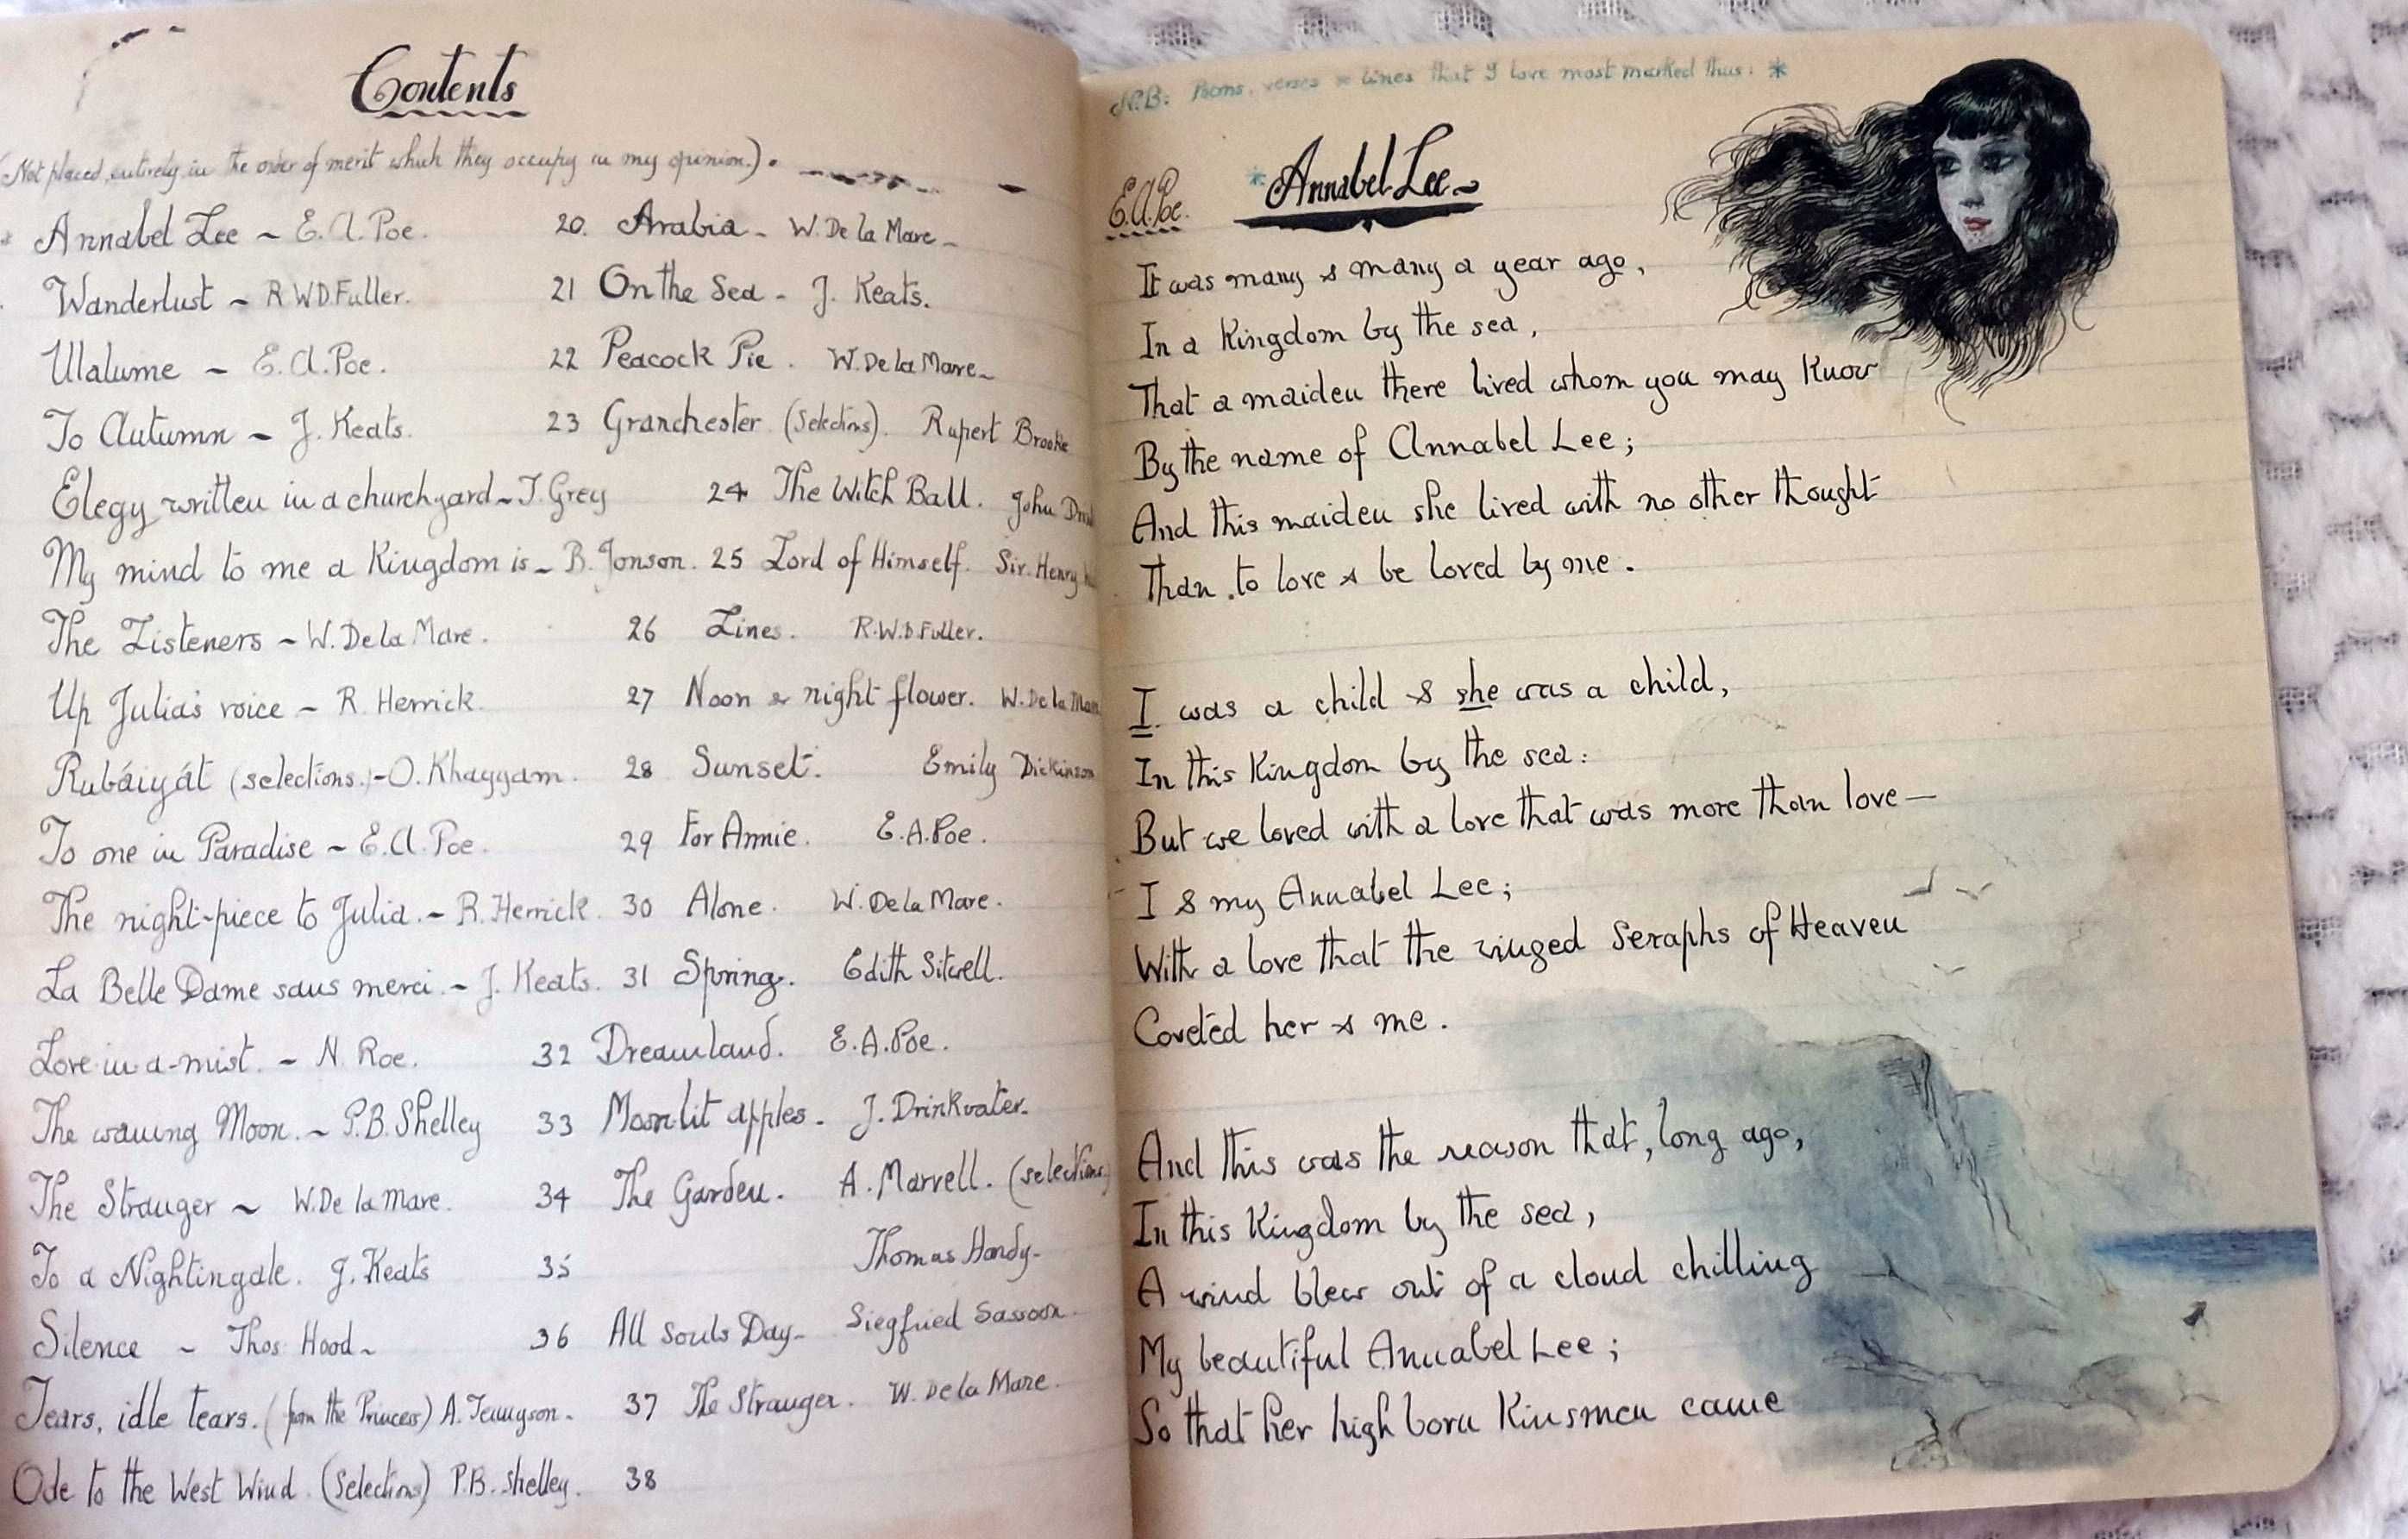 Contents
(Not placed entirely in the order of merit which they occupy in my opinion.)
Annabel Lee ~ E. A. Poe.
Wanderlust ~ R.W.D. Fuller.
Ulalume ~ E. A. Poe.
To Autumn ~ J. Keats.
Elegy written in a churchyard ~ T. Grey
My mind to me a Kingdom is ~ B. Jonson.
The Listeners ~ W. De la Mare.
Up Julia's voice ~ R. Herrick.
Rubáiyát (selections.) - O. Khayyam.
To one in Paradise ~ E. A. Poe.
The night-piece to Julia. ~ R. Herrick.
La Belle Dame sans merci. ~ J. Keats.
Love-in-a-mist. ~ N. Roe.
The waning Moon. ~ P.B. Shelley
The Stranger ~ W. De la Mare.
To a Nightingale. J. Keats
Silence ~ Thos Hood ~
Tears, idle tears. (from the Princess) A. Tennyson.
Ode to the West Wind. (Selections) P.B. Shelley.
20. Arabia - W. De la Mare -
21 On the Sea - J. Keats.
22 Peacock Pie. W. De la Mare -
23 Granchester (Selections). Rupert Brooke
24 The Witch Ball. John
25 Lord of Himself. Sir. Henry
26 Lines. R.W.D. Fuller.
27 Noon & night flower. W. De la Mare
28 Sunset. Emily Dickinson
29 For Annie. E. A. Poe.
30 Alone. W. De la Mare.
31 Spring. Edith Sitwell.
32 Dreamland. E. A. Poe.
33 Moonlit apples. J. Drinkwater.
34 The Garden. A. Marvell. (selections)
35 Thomas Hardy -
36 All Souls Day - Siegfried Sassoon.
37 The Stranger. W. De la Mare.
38
N.B: Poems, verses & lines that I love most marked thus: *
E. A. Poe.
* Annabel Lee ~
It was many & many a year ago,
In a Kingdom by the sea,
That a maiden there lived whom you may Know
By the name of Annabel Lee;
And this maiden she lived with no other thought
Than to love & be loved by me.
I was a child & she was a child,
In this Kingdom by the sea:
But we loved with a love that was more than love —
I & my Annabel Lee;
With a love that the winged Seraphs of Heaven
Coveted her & me.
And this was the reason that, long ago,
In this Kingdom by the sea,
A wind blew out of a cloud chilling
My beautiful Annabel Lee;
So that her high born Kinsmen came